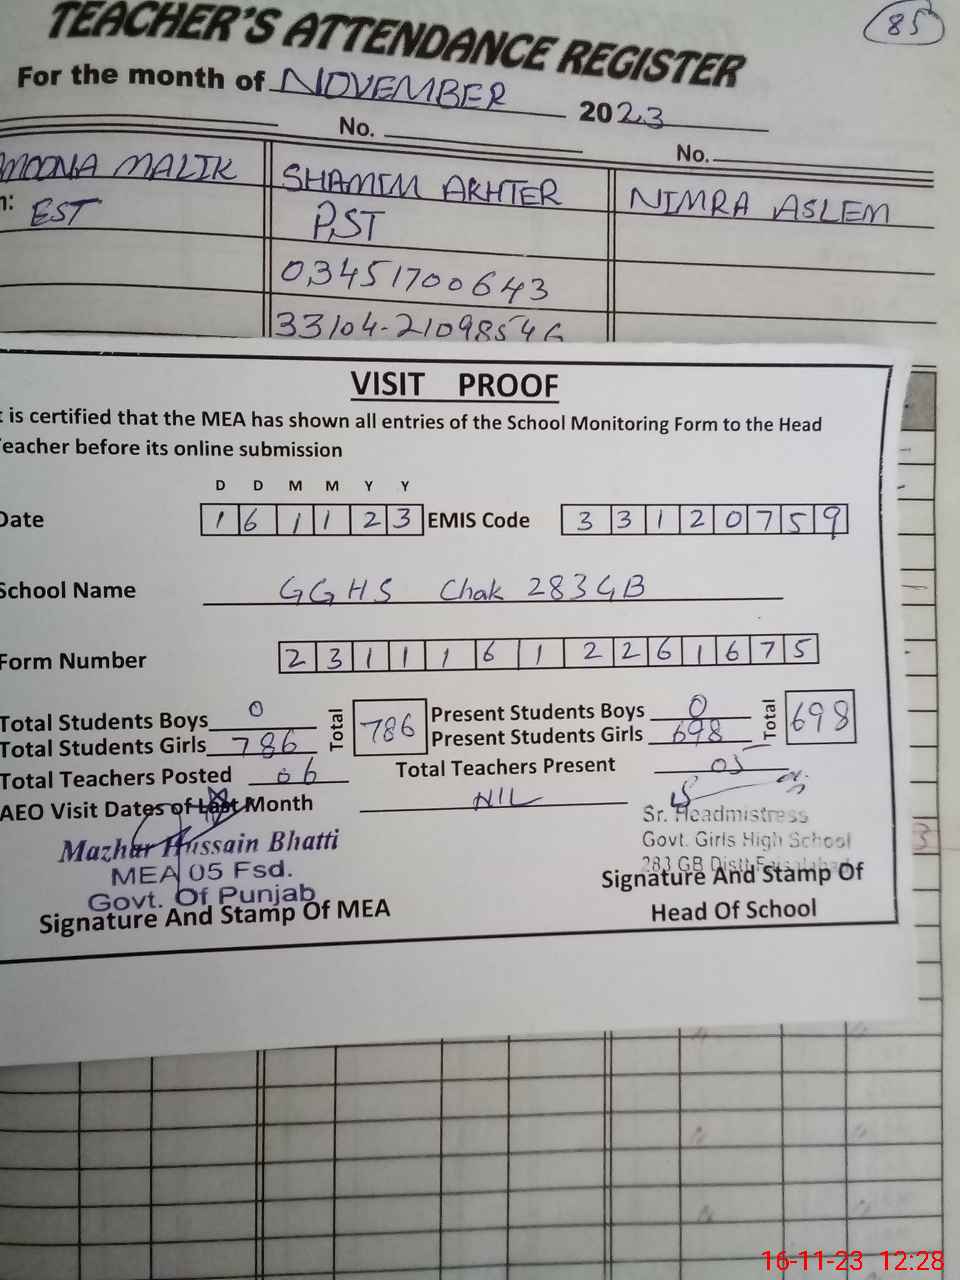 85
TEACHER'S ATTENDANCE REGISTER
For the month of NOVEMBER 2023
No.
No.
MALIK SHAMIM AKHTER NIMRA ASLEM
n: EST P,ST
03451700643
33104-2109854
VISIT PROOF
t is certified that the MEA has shown all entries of the School Monitoring Form to the Head
eacher before its online submission
D D M M Y Y
Date 1 6 1 1 2 3 EMIS Code 3 3 1 2 0 7 5 9
School Name GGHS Chak 283 GB
Form Number 2 3 1 1 1 6 1 2 2 6 1 6 7 5
Total Students Boys 0 Total 786 Present Students Boys 0 Total 698
Total Students Girls 786 Present Students Girls 698
Total Teachers Posted 06 Total Teachers Present 05
AEO Visit Dates of Last Month NIL
Sr. Headmistress
Govt. Girls High School
283 GB Distt Faisalabad
Mazhar Hussain Bhatti
MEA 05 Fsd.
Govt. Of Punjab
Signature And Stamp Of MEA
Signature And Stamp Of
Head Of School
16-11-23 12:28